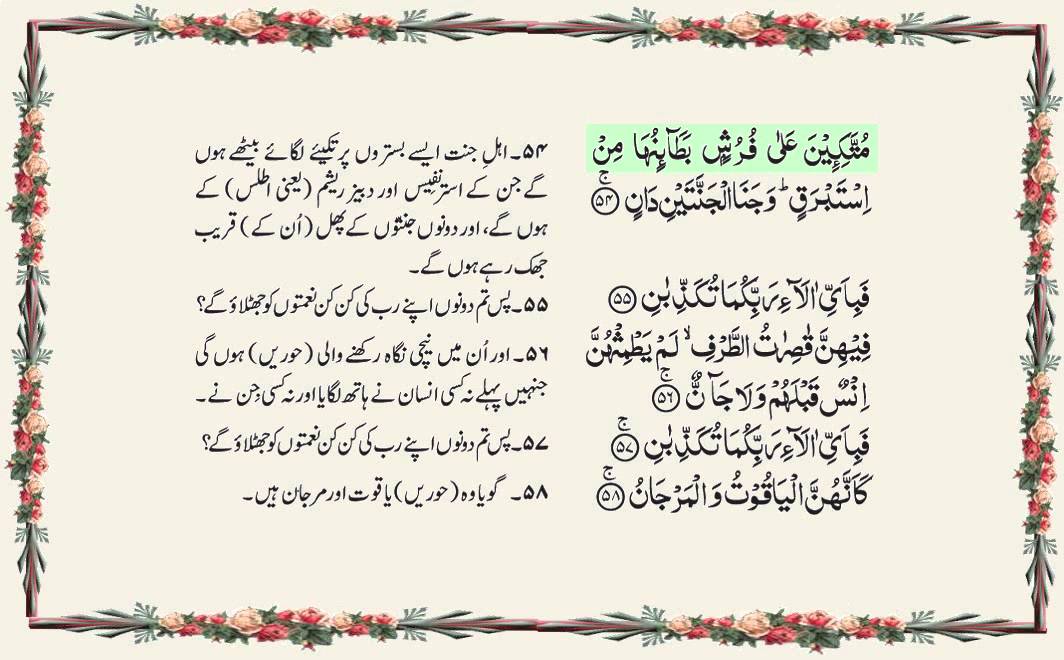 مُتَّكِـِٕيْنَ عَلٰى فُرُشٍۭ بَطَآىِٕنُهَا مِنْ
اِسْتَبْرَقٍ ؕ وَجَنَا الْجَنَّتَيْنِ دَانٍ ۚ﴿۵۴﴾
فَبِاَىِّ اٰلَآءِ رَبِّكُمَا تُكَذِّبٰنِ ﴿۵۵﴾
فِيْهِنَّ قٰصِرٰتُ الطَّرْفِ ۙ لَمْ يَطْمِثْهُنَّ
اِنْسٌ قَبْلَهُمْ وَلَا جَآنٌّ ۚ﴿۵۶﴾
فَبِاَىِّ اٰلَآءِ رَبِّكُمَا تُكَذِّبٰنِ ۚ﴿۵۷﴾
كَاَنَّهُنَّ الْيَاقُوْتُ وَالْمَرْجَانُ ۚ﴿۵۸﴾
۵۴۔ اہلِ جنت ایسے بستروں پر تکیئے لگائے بیٹھے ہوں
گے جن کے استر نفیس اور دبیز ریشم (یعنی اطلس) کے
ہوں گے، اور دونوں جنتوں کے پھل (اُن کے) قریب
جھک رہے ہوں گے۔
۵۵۔ پس تم دونوں اپنے رب کی کن کن نعمتوں کو جھٹلاؤ گے؟
۵۶۔ اور اُن میں نیچی نگاہ رکھنے والی (حوریں) ہوں گی
جنہیں پہلے نہ کسی انسان نے ہاتھ لگایا اور نہ کسی جِن نے۔
۵۷۔ پس تم دونوں اپنے رب کی کن کن نعمتوں کو جھٹلاؤ گے؟
۵۸۔ گویا وہ (حوریں) یاقوت اور مرجان ہیں۔